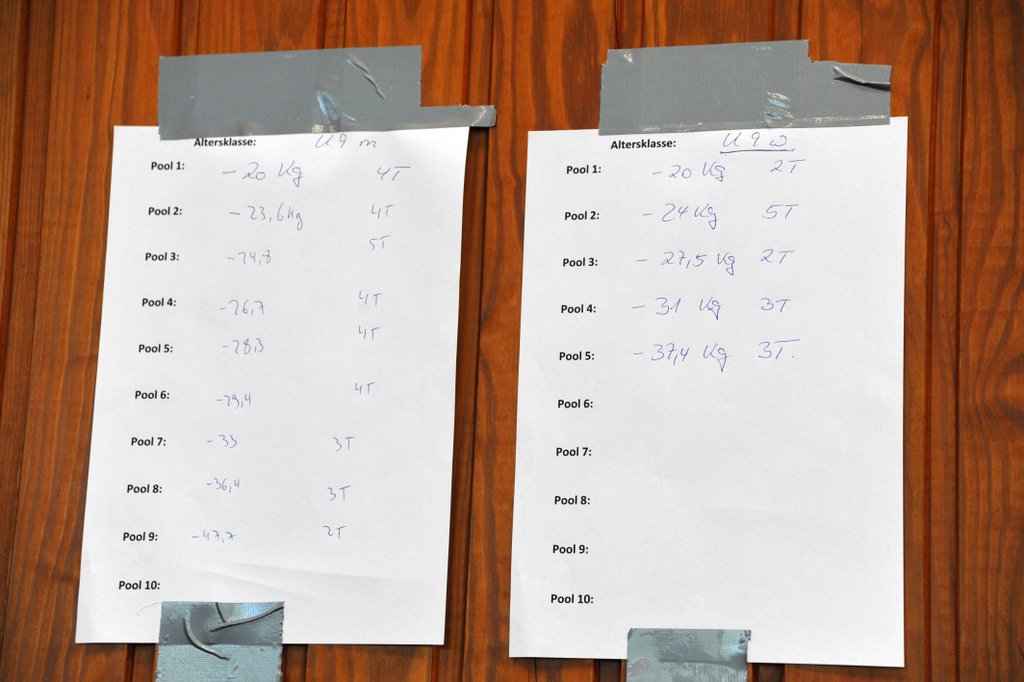 Altersklasse: U9 m
Pool 1: -20 Kg 4T
Pool 2: -23,6 Kg 4T
Pool 3: -24,8 5T
Pool 4: -26,7 4T
Pool 5: -28,3 4T
Pool 6: -29,4 4T
Pool 7: -33 3T
Pool 8: -36,4 3T
Pool 9: -47,7 2T
Pool 10:
Altersklasse: U9 w
Pool 1: -20 Kg 2T
Pool 2: -24 Kg 5T
Pool 3: -27,5 Kg 2T
Pool 4: -31 Kg 3T
Pool 5: -37,4 Kg 3T.
Pool 6:
Pool 7:
Pool 8:
Pool 9:
Pool 10: